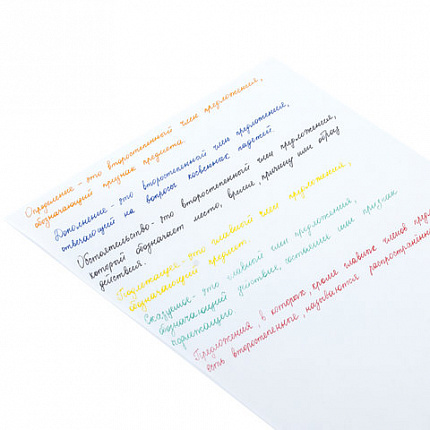 Определение - это второстепенный член предложения,
обозначающий признак предмета.
Дополнение - это второстепенный член предложения,
отвечающий на вопросы косвенных падежей.
Обстоятельство - это второстепенный член предложения,
который обозначает место, время, причину или образ
действия.
Подлежащее - это главный член предложения,
обозначающий предмет.
Сказуемое - это главный член предложения,
обозначающий действие, состояние или признак
подлежащего.
Предложения, в которых, кроме главных членов пред
есть второстепенные, называются распространённ